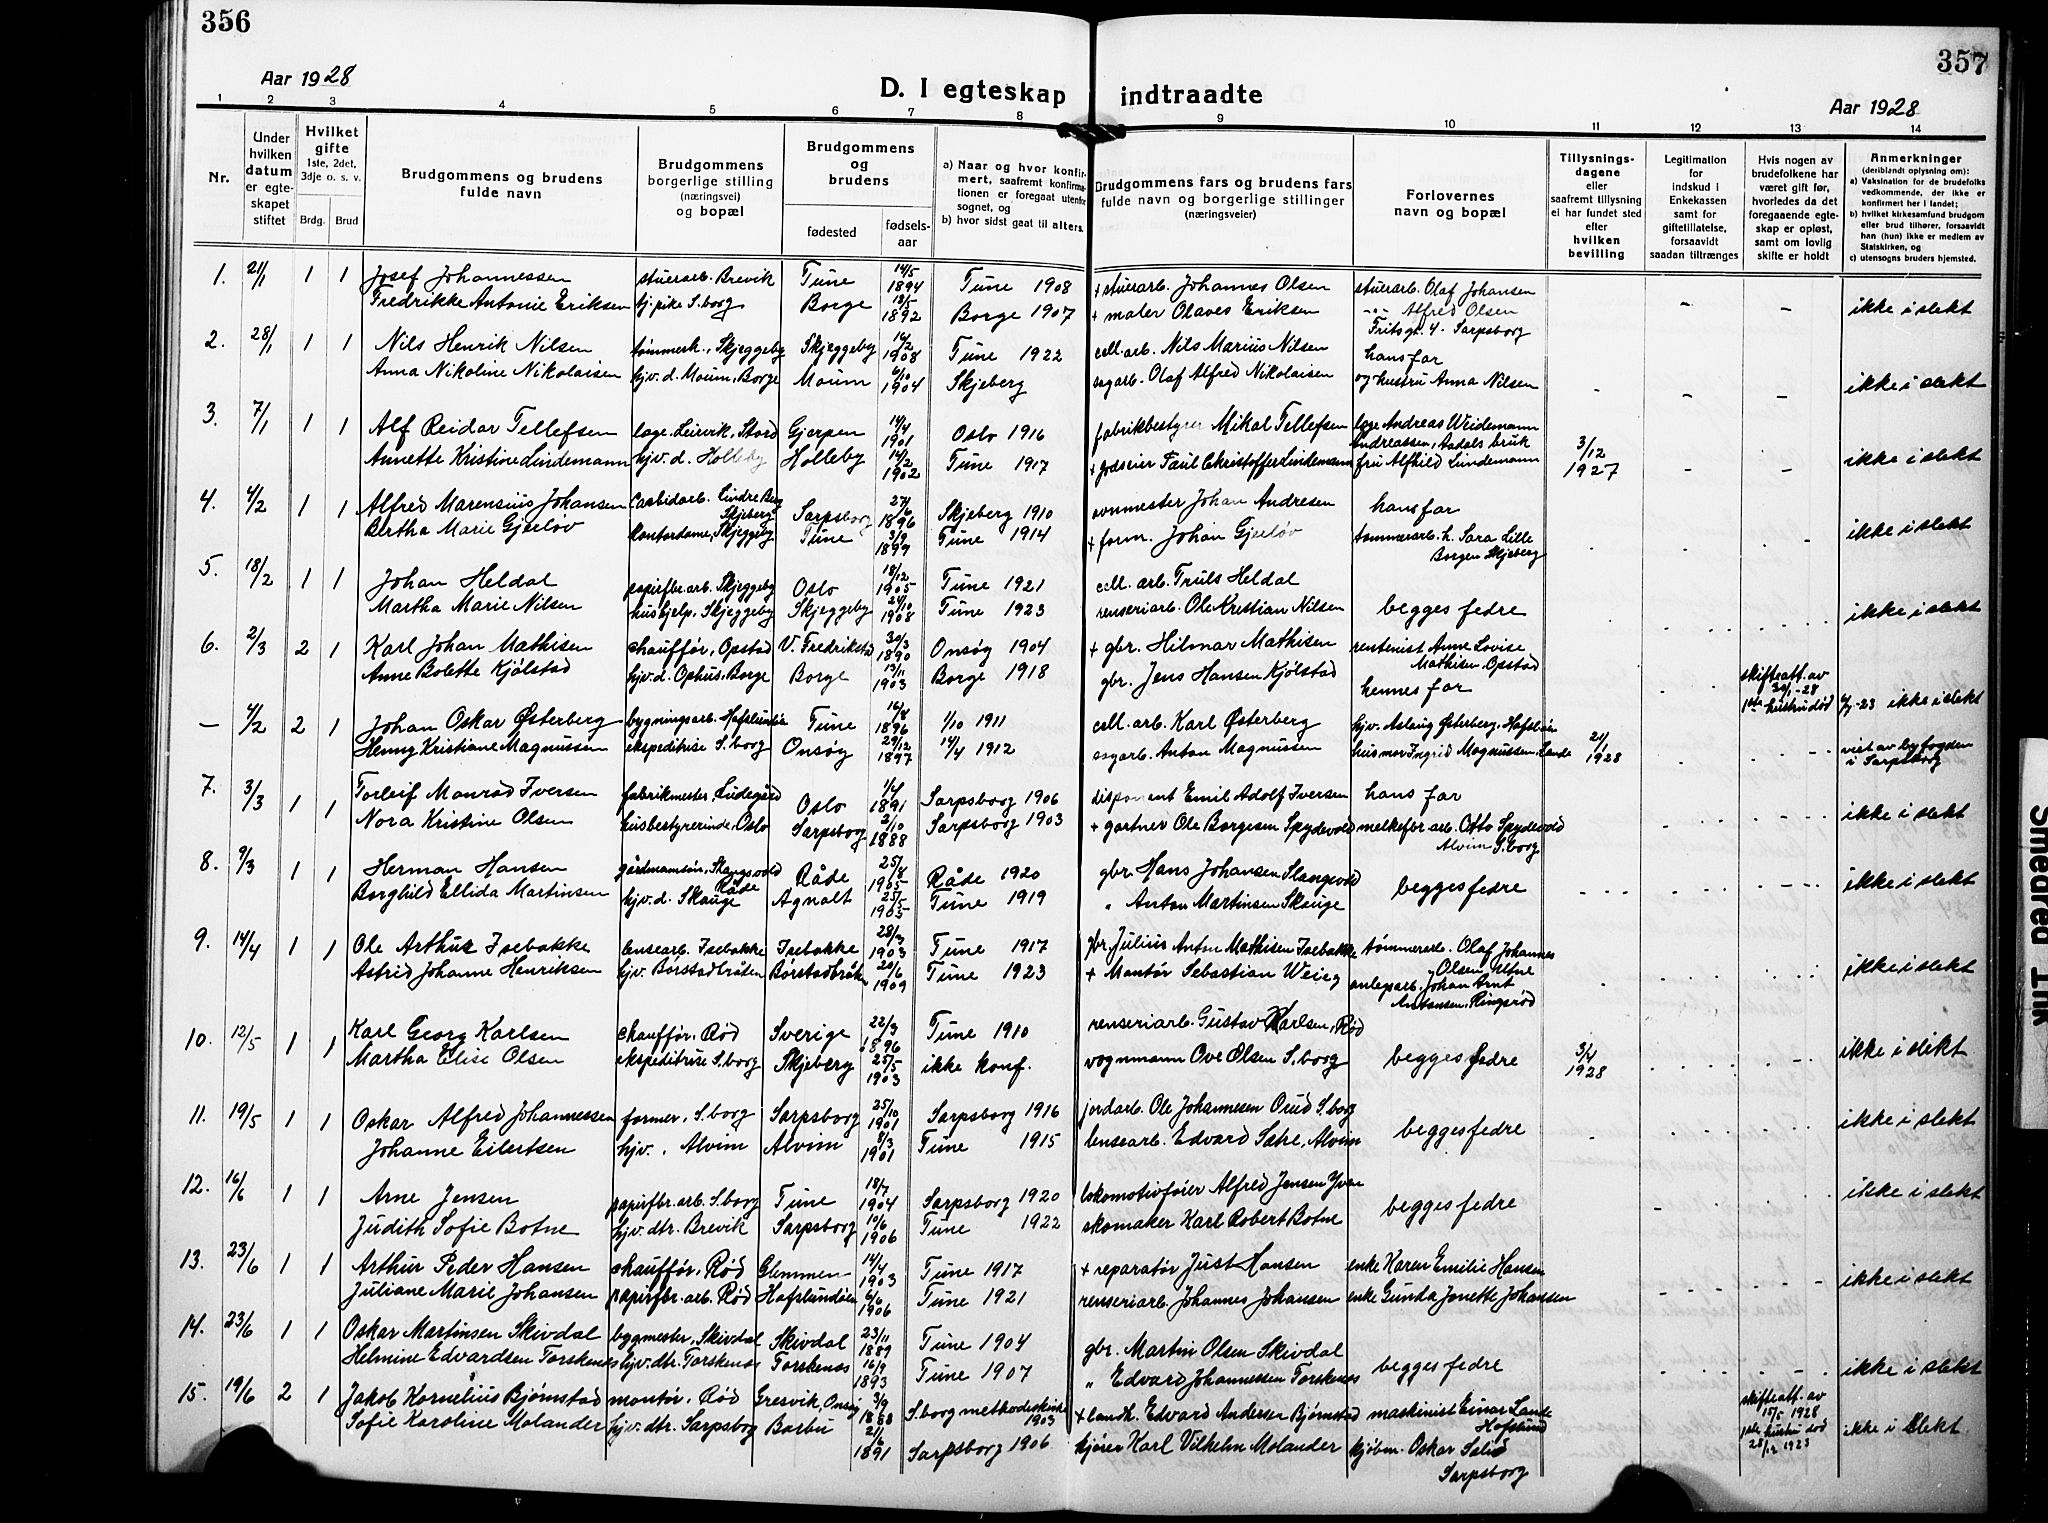 356
357
Aar 1928
D. I egteskap indtraadte
Aar 1928
1 2 3 4 5 6 7 8 9 10 11 12 13 14
Nr.
Under hvilken datum er egte-skapet stiftet
Hvilket gifte
1ste, 2det, 3dje o. s. v.
Brdg. Brud
Brudgommens og brudens fulde navn
Brudgommens borgerlige stilling (næringsvei) og bopæl
Brudgommens og brudens
fødested
fødsels-aar
a) Naar og hvor konfir-mert, saafremt konfirma-tionen er foregaat utenfor sognet, og
b) hvor sidst gaat til alters.
Brudgommens fars og brudens fars fulde navn og borgerlige stillinger (næringsveier)
Forlovernes navn og bopæl
Tillysnings-dagene eller saafremt tillysning ei har fundet sted efter hvilken bevilling
Legitimation for indskud i Enkekassen samt for giftetillatelse, forsaavidt saadan tiltrænges
Hvis nogen av brudefolkene har været gift før, hvorledes da det foregaaende egte-skap er opløst, samt om lovlig skifte er holdt
Anmerkninger (deriblandt oplysning om):
a) Vaksination for de brudefolks vedkommende, der ikke er konfirmert her i landet;
b) hvilket kirkesamfund brudgom eller brud tilhører, forsaavidt han (hun) ikke er medlem av Statskirken, og
c) utensogns bruders hjemsted.
1. 21/1 1 1 Josef Johannessen stuerarb. Brevik Tune 14/5 1894 Tune 1908 + stuerarb. Johannes Olsen stuerarb. Olaf Johansen
Fredrikke Antonie Eriksen hj. pike S.borg Borge 13/5 1892 Borge 1907 + maler Olaves Eriksen -"- Alfred Olsen - - ikke i slekt
Fritsgt. 4. Sarpsborg
2. 28/1 1 1 Nils Henrik Nilsen tømmerh., Skjeggeby Skjeggeby 16/2 1908 Tune 1922 cell. arb. Nils Marius Nilsen hans far
Anna Nikoline Nikolaisen hjv. d. Moum, Borge Moum 6/10 1904 Skjeberg sagarb. Olaf Alfred Nikolaisen og hustru Anna Nilsen - - - ikke i slekt
3. 7/1 1 1 Alf Reidar Tellefsen læge. Leirvik, Stord Gjerpen 14/4 1901 Oslo 1916 fabrikbestyrer Mikal Tellefsen læge Andreas Weidemann
Andreassen, Aadals bruk
Annette Kristine Lindemann hjv. d. Holleby Holleby 14/2 1902 Tune 1917 + godseier Paul Christoffer Lindemann fru Alfhild Lindemann 3/12 1927 - - ikke i slekt
4. 4/2 1 1 Alfred Marensius Johansen Carbidarb. Lindre Berg Skjeberg Sarpsborg 27/6 1896 Skjeberg 1910 ovnmester Johan Andresen hans far
Bertha Marie Gjerløv Kontordame, Skjeggeby Tune 3/9 1899 Tune 1914 + form. Johan Gjerløv tømmerarb. h. Sara Lille Borgen Skjeberg ikke i slekt
5. 18/2 1 1 Johan Heldal papirfbr. arb. Skjeggeby Oslo 18/12 1905 Tune 1921 cell. arb. Truls Heldal
Martha Marie Nilsen hushjelp, Skjeggeby Skjeggeby 24/10 1908 Tune 1923 renseriarb. Ole Kristian Nilsen begges fedre ikke i slekt
6. 2/3 2 1 Karl Johan Mathisen chauffør, Opstad V. Fredrikstad 30/3 1890 Onsøy 1904 + gbr. Hilmar Mathisen rentenist Anne Lovise Mathisen Opstad
Anne Bolette Kjølstad hjv. d. Ophus, Borge Borge 13/11 1903 Borge 1918 gbr. Jens Hansen Kjølstad hennes far skifteatt. av 30/1-28 1ste hustru død 4/7-23 ikke i slekt
— 4/2 2 1 Johan Oskar Østerberg bygningsarb. Hafslundøi Tune 16/8 1896 1/10 1911 cell. arb. Karl Østerberg hjv. Aslaug Østerberg, Hafslundøi
Henny Kristiane Magnussen ekspeditrise S.borg Onsøy 29/12 1897 14/4 1912 sagarb. Anton Magnussen husmor Ingrid Magnussen, Lande 21/1 1928 viet av byfogden i Sarpsborg
7. 3/3 1 1 Torleif Monrad Iversen fabrikmester, Ludegård Oslo 1/4 1891 Sarpsborg 1906 disponent Emil Adolf Iversen hans far
Nora Kristine Olsen husbestyrerinde, Oslo Sarpsborg 2/10 1888 Sarpsborg 1903 + gartner Ole Borgesen Spydevold melkefbr. arb. Otto Spydevold Alvim S.borg ikke i slekt
8. 9/3 1 1 Herman Hansen gårdmannsøn, Slangsvold Råde Råde 25/8 1905 Råde 1920 gbr. Hans Johansen Slangsvold
Borghild Ellida Martinsen hjv. d. Skauge Agnalt 25/5 1905 Tune 1919 " Anton Martinsen Skauge begges fedre ikke i slekt
9. 14/4 1 1 Ole Arthur Isebakke lensearb. Isebakke Isebakke 28/3 1903 Tune 1917 gbr. Julius Anton Mathisen Isebakke tømmerarb. Olaf Johannes Olsen Utne
Astrid Johanne Henriksen hjv. Børstadbråten Børstadbråten 20/6 1909 Tune 1923 + Montør Sebastian Weieg anlegsarb. Johan Arnt Antonsen, Ringsrød ikke i slekt
10. 12/5 1 1 Karl Georg Karlsen chauffør, Rød Sverige 22/3 1896 Tune 1910 renseriarb. Gustav Karlsen, Rød
Martha Elise Olsen ekspeditrise S.borg Skjeberg 25/5 1903 ikke konf. vognmann Ove Olsen S.borg begges fedre 3/4 1928 ikke i slekt
11. 19/5 1 1 Oskar Alfred Johannessen former, S.borg Sarpsborg 25/10 1901 Sarpsborg 1916 jordarb. Ole Johannesen Orud S.borg
Johanne Eilertsen hjv., Alvim Alvim 8/3 1901 Tune 1915 lensearb. Edvard Sæhe, Alvim begges fedre ikke i slekt
12. 16/6 1 1 Arne Jensen papirfbr. arb. S.borg Tune 18/7 1904 Sarpsborg 1920 lokomotivfører Alfred Jensen Yven
Judith Sofie Botne hjv. dtr. Brevik Sarpsborg 10/6 1906 Tune 1922 skomaker Karl Robert Botne begges fedre ikke i slekt
13. 23/6 1 1 Arthur Peder Hansen chauffør, Rød Glemmen 14/4 1903 Tune 1917 + reparatør Just Hansen enke Karen Emilie Hansen
Juliane Marie Johansen papirfbr. arb. Rød Hafslundøen 6/6 1906 Tune 1921 renseriarb. Johannes Johansen enke Gunda Jonette Johansen ikke i slekt
14. 23/6 1 1 Oskar Martinsen Skivdal bygmester, Skivdal Skivdal 23/11 1889 Tune 1904 gbr. Martin Olsen Skivdal
Helmine Edvardsen Torskenes hjv. dtr. Torskenes Torskenes 16/9 1893 Tune 1907 " Edvard Johannessen Torskenes begges fedre ikke i slekt
15. 19/6 2 1 Jakob Kornelius Bjørnstad montør, Rød Gresvik, Onsøy 3/9 1888 S.borg methodistkirke 1903 + landh. Edvard Andersen Bjørnstad maskinist Einar Lande Hafslund
Sofie Karoline Molander hjv. dtr. Sarpsborg Barbu 21/6 1891 Sarpsborg 1906 kjører Karl Vilhelm Molander kjøbm. Oskar Salid Sarpsborg skifteatt. av 15/5 1928 1ste hustru død 28/12 1923 ikke i slekt
Smeared Ink